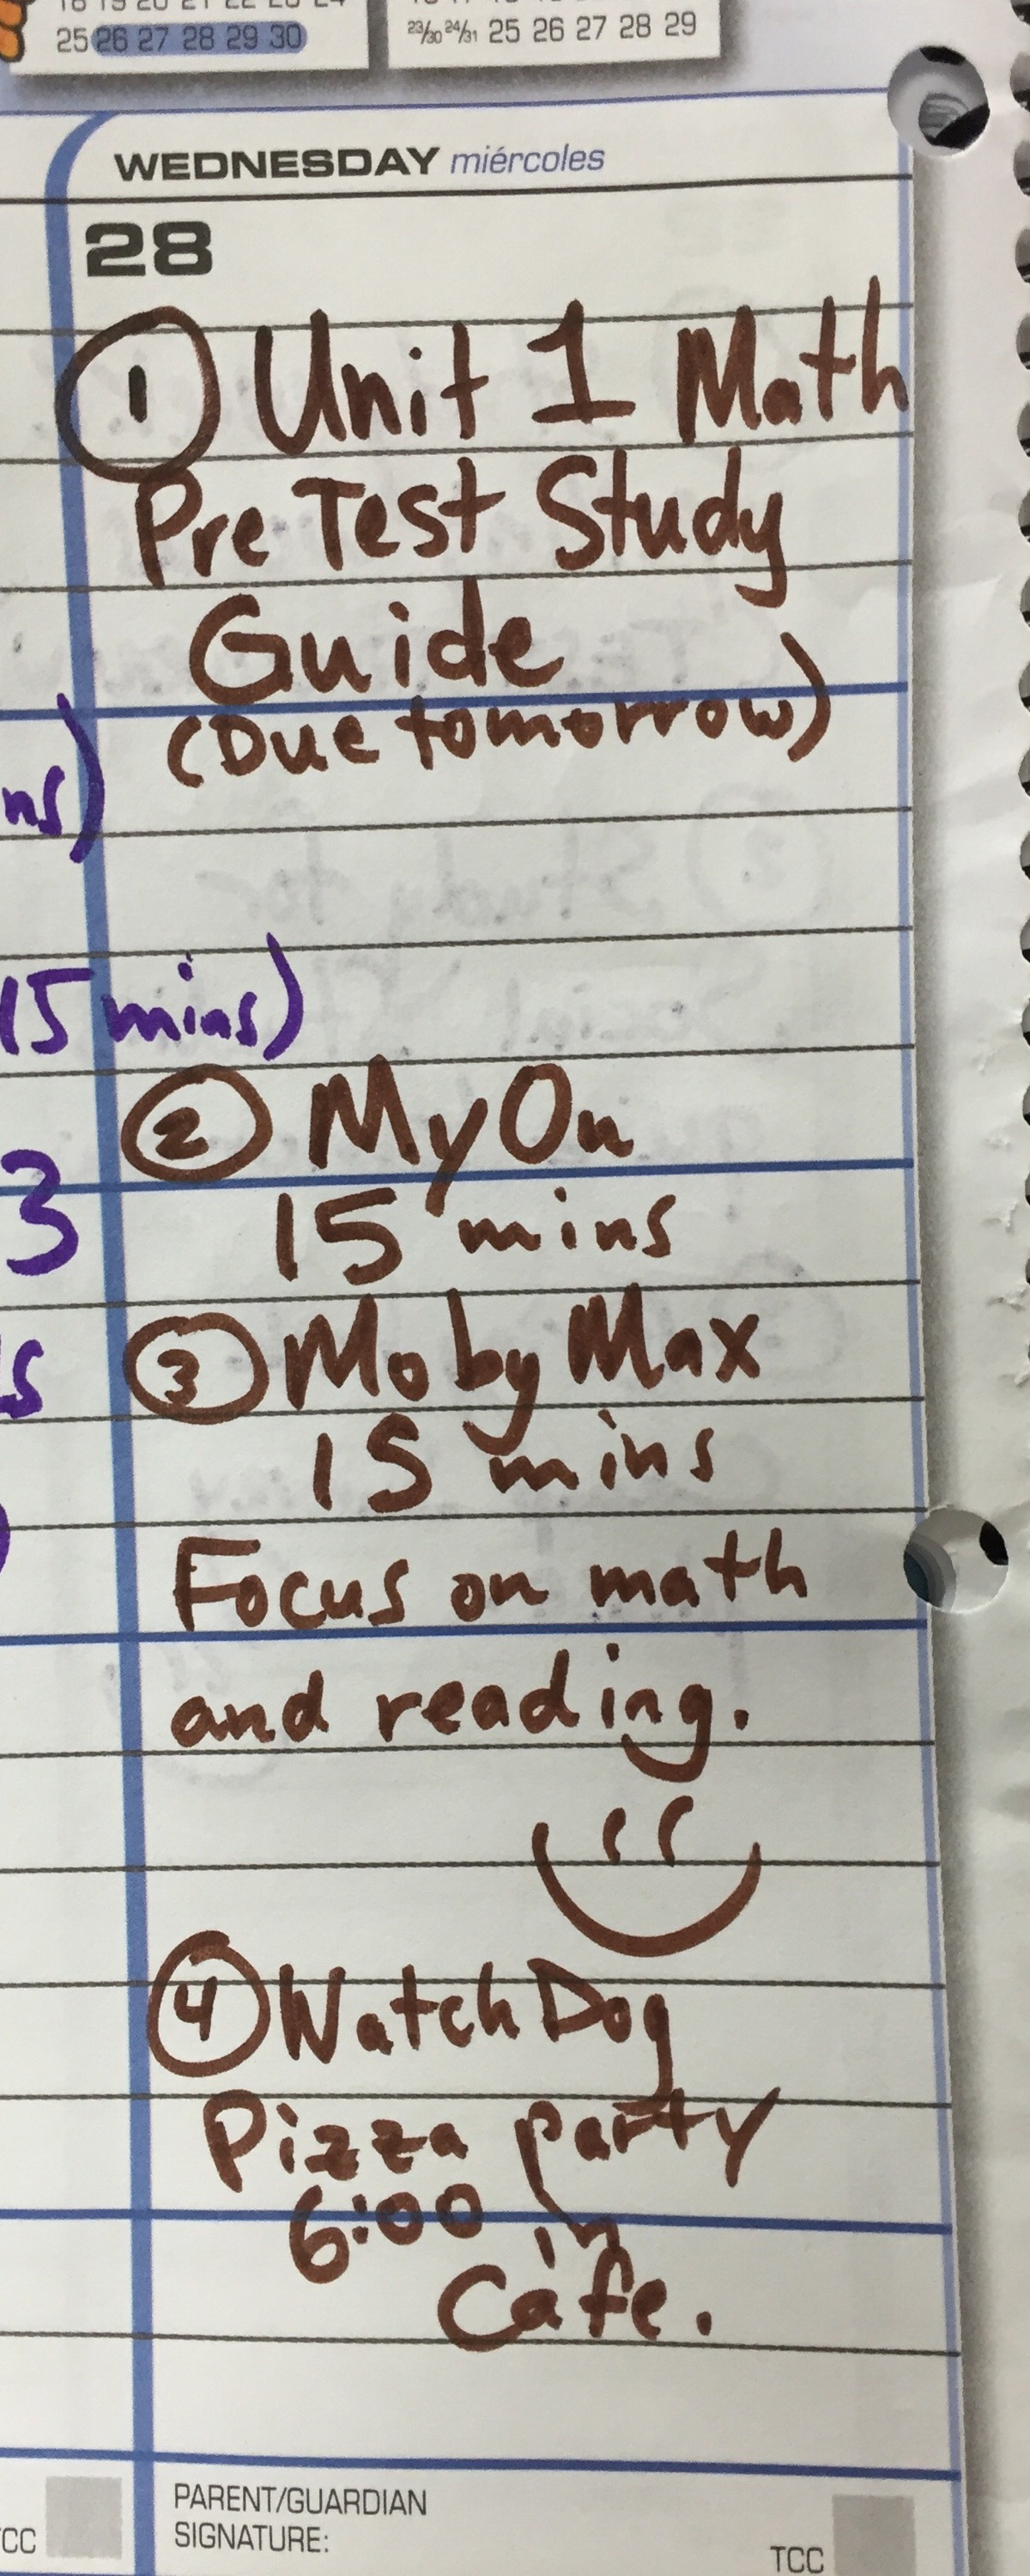 25 26 27 28 29 30
23/30 24/31 25 26 27 28 29
WEDNESDAY miércoles
28
1 Unit 1 Math
Pre Test Study
Guide
(Due tomorrow)
15 mins)
2 MyOn
15 mins
3
3 Moby Max
15 mins
Focus on math
and reading.
4 Watch Dog
Pizza party
6:00 in
Cafe.
PARENT/GUARDIAN
SIGNATURE:
TCC